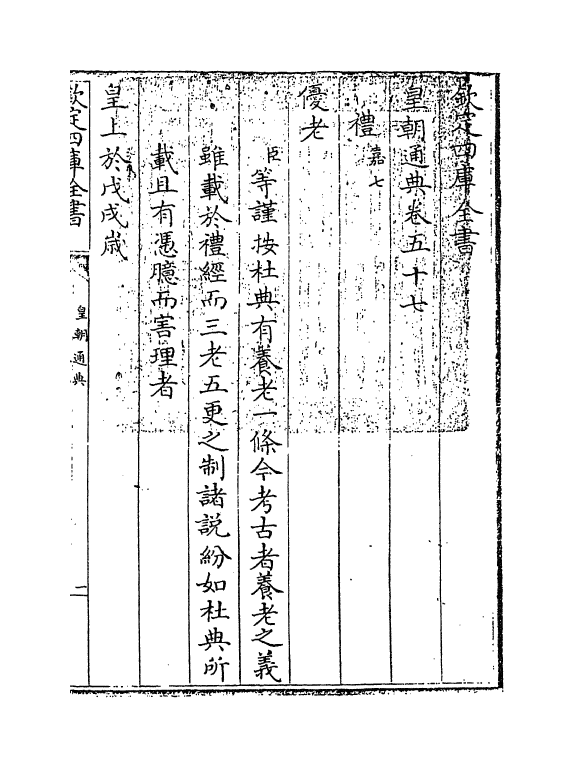 欽定四庫全書
皇朝通典卷五十七
禮嘉七
優老
臣等謹按杜典有養老一條今考古者養老之義
雖載於禮經而三老五更之制諸説紛如杜典所
載且有憑臆而害理者
皇上於戊戌歲
欽定四庫全書
皇朝通典
二